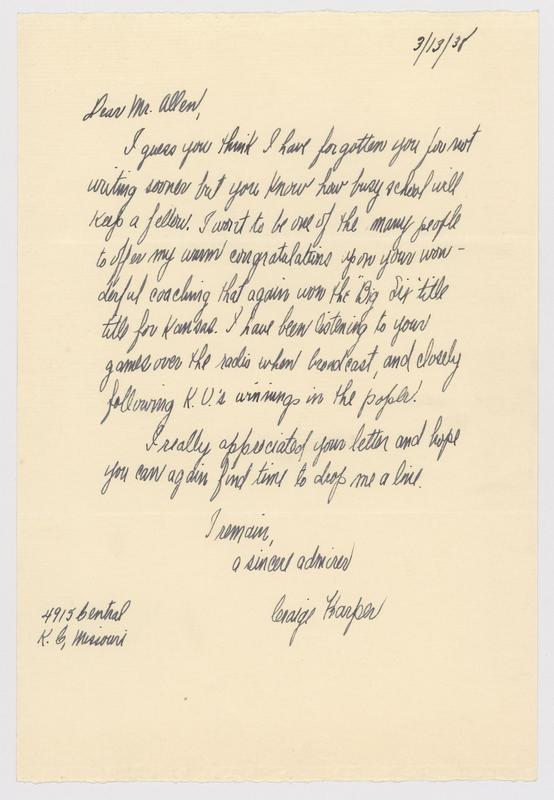 3/13/38
Dear Mr. Allen,
I guess you think I have forgotten you for not
writing sooner but you know how busy school will
keep a fellow. I want to be one of the many people
to offer my warm congratulations upon your won-
derful coaching that again won the "Big Six" title
title for Kansas. I have been listening to your
games over the radio when broadcast, and closely
following K.U.'s winnings in the paper.
I really appreciated your letter and hope
you can again find time to drop me a line.
I remain,
a sincere admirer
Craige Harper
4915 Central
K. C, Missouri